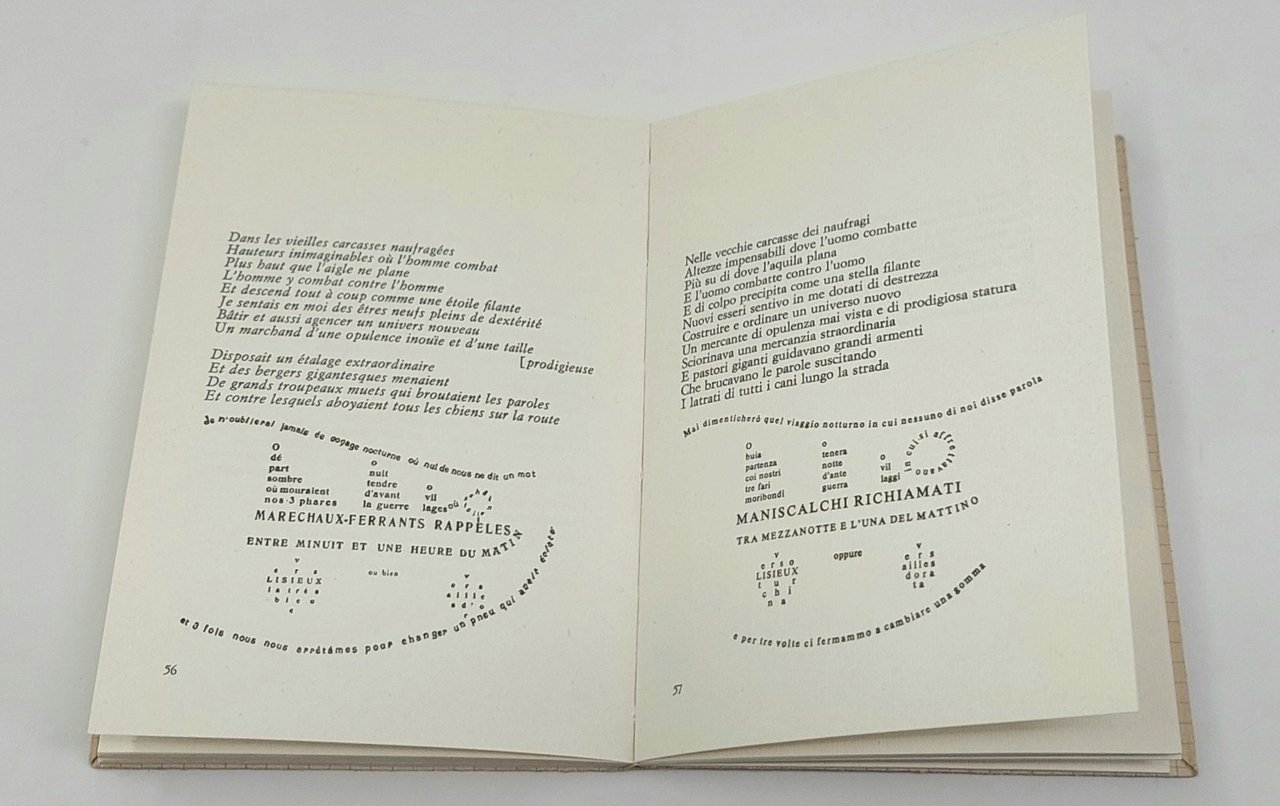 Dans les vieilles carcasses naufragées
Hauteurs inimaginables où l'homme combat
Plus haut que l'aigle ne plane
L'homme y combat contre l'homme
Et descend tout à coup comme une étoile filante
Je sentais en moi des êtres neufs pleins de dextérité
Bâtir et aussi agencer un univers nouveau
Un marchand d'une opulence inouïe et d'une taille
[prodigieuse
Disposait un étalage extraordinaire
Et des bergers gigantesques menaient
De grands troupeaux muets qui broutaient les paroles
Et contre lesquels aboyaient tous les chiens sur la route
Je n'oublierai jamais ce voyage nocturne où nul de nous ne dit un mot
O
dé
part
sombre
où mouraient
nos 3 phares
o
nuit
tendre
d'avant
la guerre
o
vil
lages où
MARECHAUX-FERRANTS RAPPELÉS
ENTRE MINUIT ET UNE HEURE DU MATIN
v
e r s
LISIEUX
la très
b l e u
e
ou bien
v
e r s
a i l l e
s d' o
r
et 3 fois nous nous arrêtâmes pour changer un pneu qui avait éclaté
56
Nelle vecchie carcasse dei naufragi
Altezze impensabili dove l'uomo combatte
Più su di dove l'aquila plana
E l'uomo combatte contro l'uomo
E di colpo precipita come una stella filante
Nuovi esseri sentivo in me dotati di destrezza
Costruire e ordinare un universo nuovo
Un mercante di opulenza mai vista e di prodigiosa statura
Sciorinava una mercanzia straordinaria
E pastori giganti guidavano grandi armenti
Che brucavano le parole suscitando
I latrati di tutti i cani lungo la strada
Mai dimenticherò quel viaggio notturno in cui nessuno di noi disse parola
O
buia
partenza
coi nostri
tre fari
moribondi
o
tenera
notte
d'ante
guerra
o
vil
laggi
in cui si affrettavano
MANISCALCHI RICHIAMATI
TRA MEZZANOTTE E L'UNA DEL MATTINO
v
e r s o
LISIEUX
t u r
c h i
n a
oppure
v
e r s
ailles
d o r a
t a
e per tre volte ci fermammo a cambiare una gomma
57